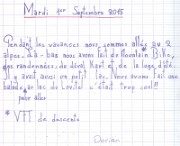 Mardi 1er Septembre 2015
Pendant les vacances nous sommes allés au 2
alpes. là-bas nous avons fait du Mountain Bike,
des randonnées de dével et de la luge d'été.
Il y avait aussi un petit lac. Nous avons fait une
balade c'était trop cool!!
pour aller
* VTT de descente